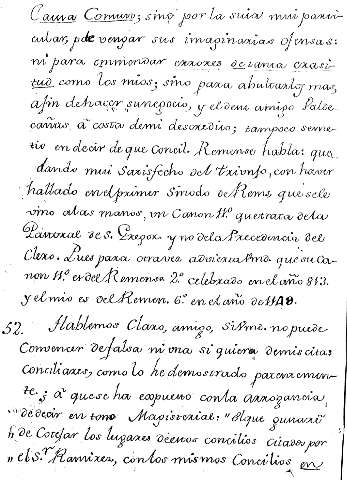 Causa Comun; sino por la suia mui parti-
cular, pde vengar sus imaginarias ofensas:
ni para enmendar errores de tanta crasi
tud como los mios; sino para abultarlos mas,
afin de hacer su negocio, y el de mi amigo Valde
cañas á costa de mi descredito; tampoco se me-
tio en decir de que Concil. Remense habla: que
dando mui satisfecho del triunfo, con haver
hallado en el primer Sinodo de Rems, que se le
vino a las manos, un Canon 11.º que trata de la
Pastoral de S. Gregor. y no de la Precedencia del
Clero. Pues para otra vez adviertaVmd. que su Ca-
non 11.º es del Remense 2.º celebrado en el año 813.
y el mio es del Remen. 6.º en el año de 1148.
52. Hablemos Claro, amigo, si Vmd. no puede
Convencer de falsa ni una si quiera de mis citas
Conciliares, como lo he demostrado patentemen-
te; á que se ha expuesto con la arrogancia
" de decir en tono Magisterial: "El que gustare
" de Cotejar los lugares de estos Concilios citados por
" el S.r Ramirez, con los mismos Concilios en